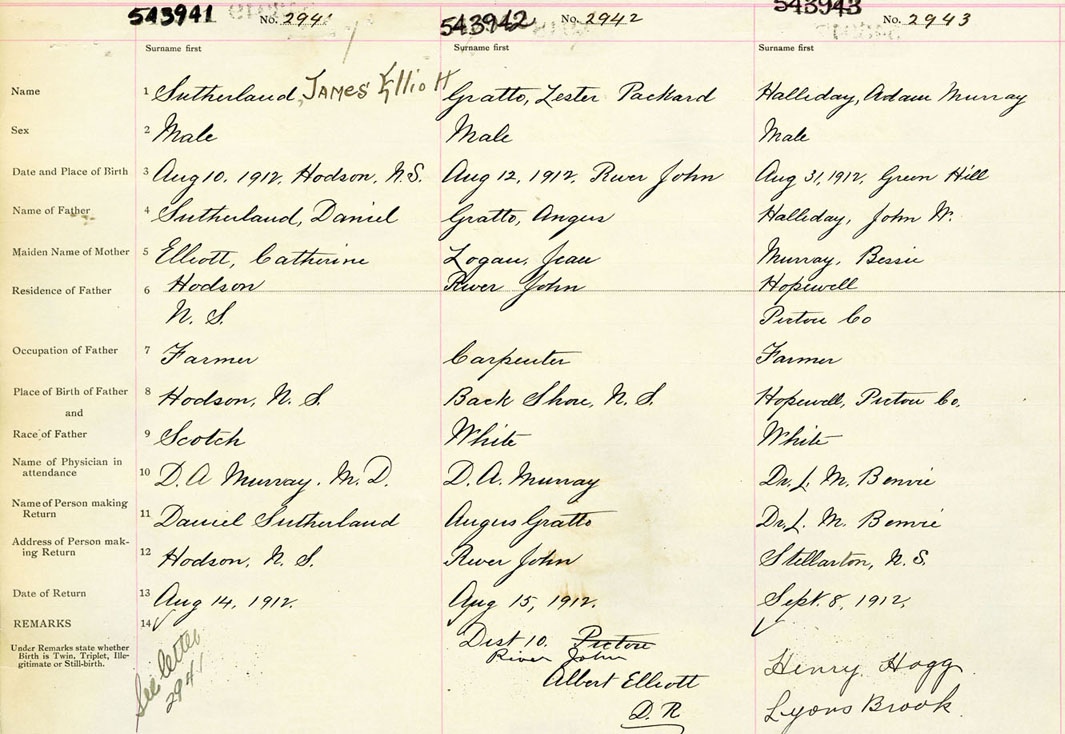 543941 No. 2941 543942 No. 2942 543943 No. 2943
Surname first Surname first Surname first
Name 1 Sutherland, James Elliott Gratto, Lester Packard Halliday, Adam Murray
Sex 2 Male Male Male
Date and Place of Birth 3 Aug 10, 1912, Hodson, N.S. Aug 12, 1912, River John Aug 31, 1912, Green Hill
Name of Father 4 Sutherland, Daniel Gratto, Angus Halliday, John W.
Maiden Name of Mother 5 Elliott, Catherine Logan, Jean Murray, Bessie
Residence of Father 6 Hodson River John Hopewell
N. S. Pictou Co
Occupation of Father 7 Farmer Carpenter Farmer
Place of Birth of Father 8 Hodson, N. S. Back Shore, N. S. Hopewell, Pictou Co.
and
Race of Father 9 Scotch White White
Name of Physician in
attendance 10 D. A Murray. M. D. D. A. Murray Dr. L. M. Benvie
Name of Person making
Return 11 Daniel Sutherland Angus Gratto Dr. L. M. Benvie
Address of Person mak-
ing Return 12 Hodson, N. S. River John Stellarton, N. S.
Date of Return 13 Aug 14, 1912. Aug 15, 1912. Sept. 8, 1912.
REMARKS 14
Under Remarks state whether
Birth is Twin, Triplet, Ille-
gitimate or Still-birth.
See letter
2941
Dist 10. Pictou
River John
Albert Elliott
D. R
Henry Hogg
Lyons Brook.